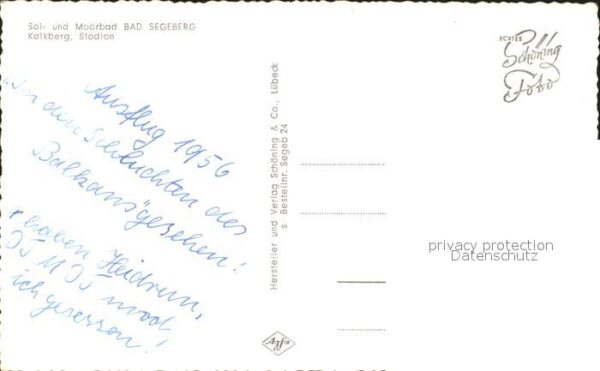 Sol- und Moorbad BAD SEGEBERG
Kalkberg, Stadion
ECHTES
Schöning
Foto
Ausflug 1956
"In den Schluchten des
Balkans" gesehen!
haben Heidrun,
und
ich gesessen!
Hersteller und Verlag Schöning & Co., Lübeck
s Bestellnr. Segeb 24
privacy protection
Datenschutz
Agfa